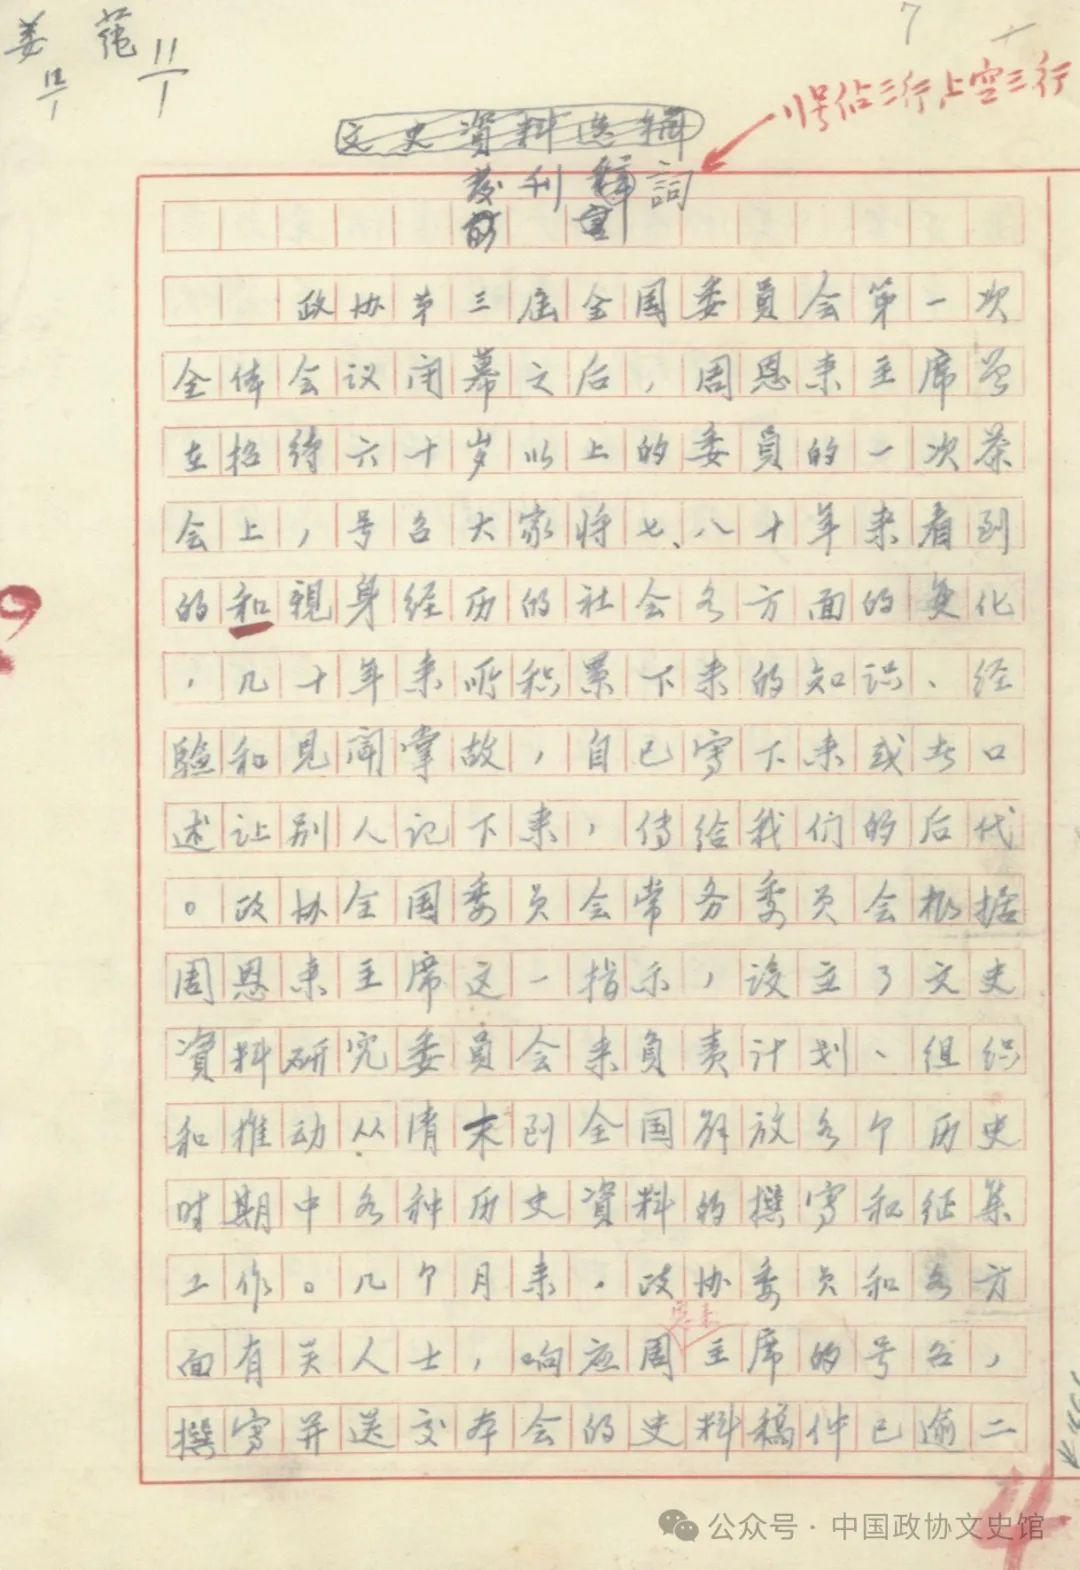 姜 范
12/1 11/1
7
1号佔三行,上空三行
文史資料选輯
发刊詞
前言
政协第三届全国委員会第一次
全体会议闭幕之后,周恩来主席曾
在招待六十岁以上的委員的一次茶
会上,号召大家将七、八十年来看到
的和親身经历的社会各方面的变化
,几十年来所积累下来的知识、经
驗和見聞掌故,自己写下来或者口
述让别人记下来,传给我们的后代
。政协全国委员会常务委员会根据
周恩来主席这一指示,设立了文史
資料研究委員会来負责计划、组织
和推动从清末到全国解放各个历史
时期中各种历史資料的撰写和征集
工作。几个月来,政协委员和各方
恩来
面有关人士,响应周主席的号召,
撰写并送交本会的史料稿件已逾二
4
公众号·中国政协文史馆